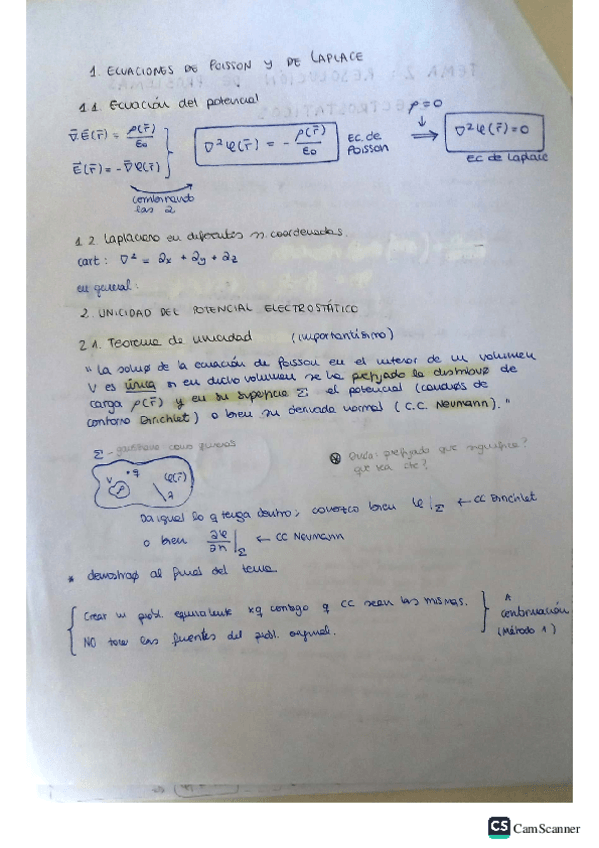 1. ECUACIONES DE POISSON Y DE LAPLACE
1.1. Ecuación del potencial
∇·E(r̄) = ρ(r̄)/ε₀
E(r̄) = -∇φ(r̄)
combinando las 2
∇²φ(r̄) = - ρ(r̄)/ε₀
EC. de Poisson
ρ=0
↓
⇒
∇²φ(r̄)=0
EC. de Laplace
1.2. Laplaciano en diferentes coordenadas.
cart: ∇² = ∂x + ∂y + ∂z
en general:
2. UNICIDAD DEL POTENCIAL ELECTROSTÁTICO
2.1. Teorema de unicidad (importantísimo)
" La soluç de la ecuación de Poisson en el interior de un volumen
V es única si en dicho volumen se ha prefijado la distribuç de
carga ρ(r̄) y en su superficie Σ el potencial (condiç de
contorno Dirichlet) o bien su derivada normal (C.C. Neumann). "
Σ - gaussiana como quieras
V
q
ρ
φ(r̄)
?
⊛ Duda: prefijado que significa?
que sea cte?
Da igual lo q tenga dentro; conozco bien φ|Σ ← CC Dirichlet
o bien ∂φ/∂n|Σ ← CC Neumann
* demostraç al final del tema.
Crear un probl. equivalente xq consigo q CC sean las mismas.
NO tocar las fuentes del probl. original.
A continuación
(Método 1)
CS CamScanner